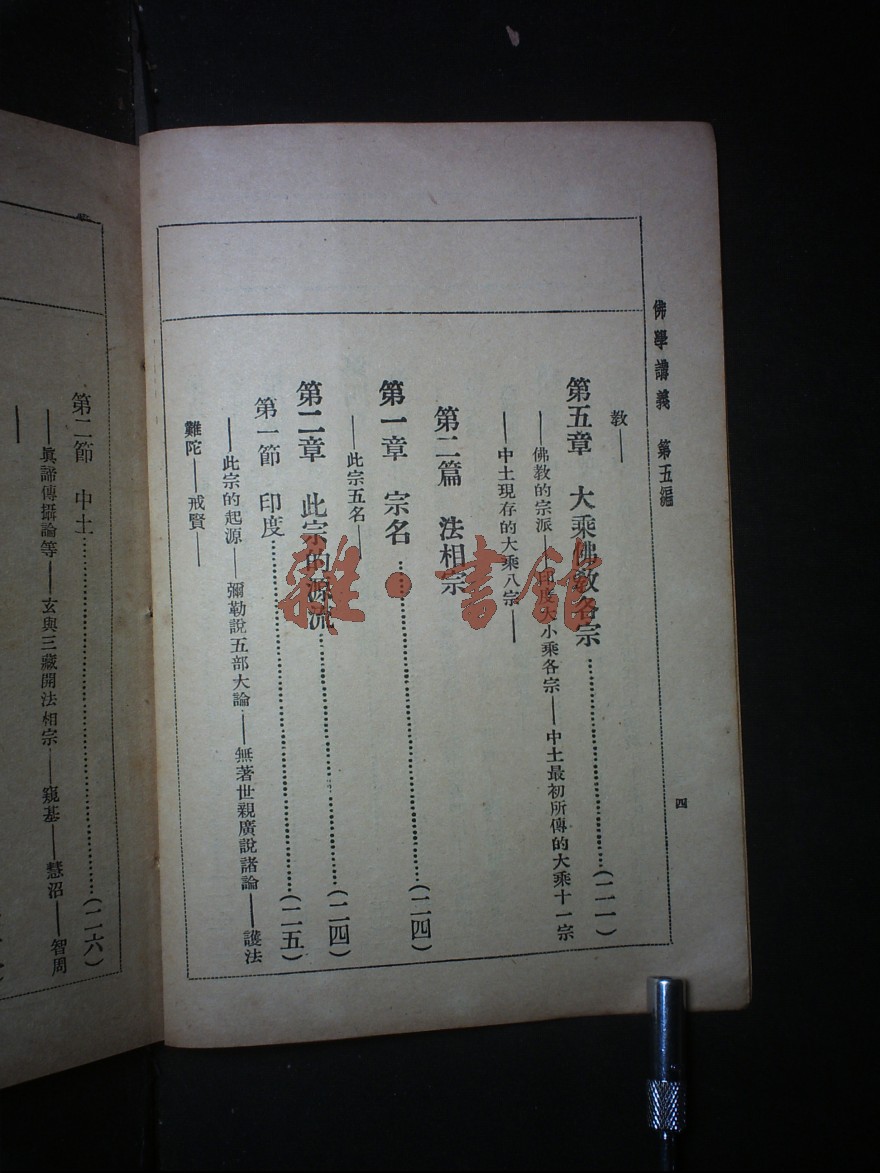 佛學講義 第五編
四
教——
第五章 大乘佛教各宗……(二一)
——佛教的宗派——印度大小乘各宗——中土最初所傳的大乘十一宗
——中土現存的大乘八宗——
第二篇 法相宗
第一章 宗名……(二四)
——此宗五名——
第二章 此宗的源流……(二四)
第一節 印度……(二五)
——此宗的起源——彌勒說五部大論——無著世親廣說諸論——護法
難陀——戒賢——
第二節 中土……(二六)
——眞諦傳攝論等——玄奘三藏開法相宗——窺基——慧沼——智周
——
雜·書館